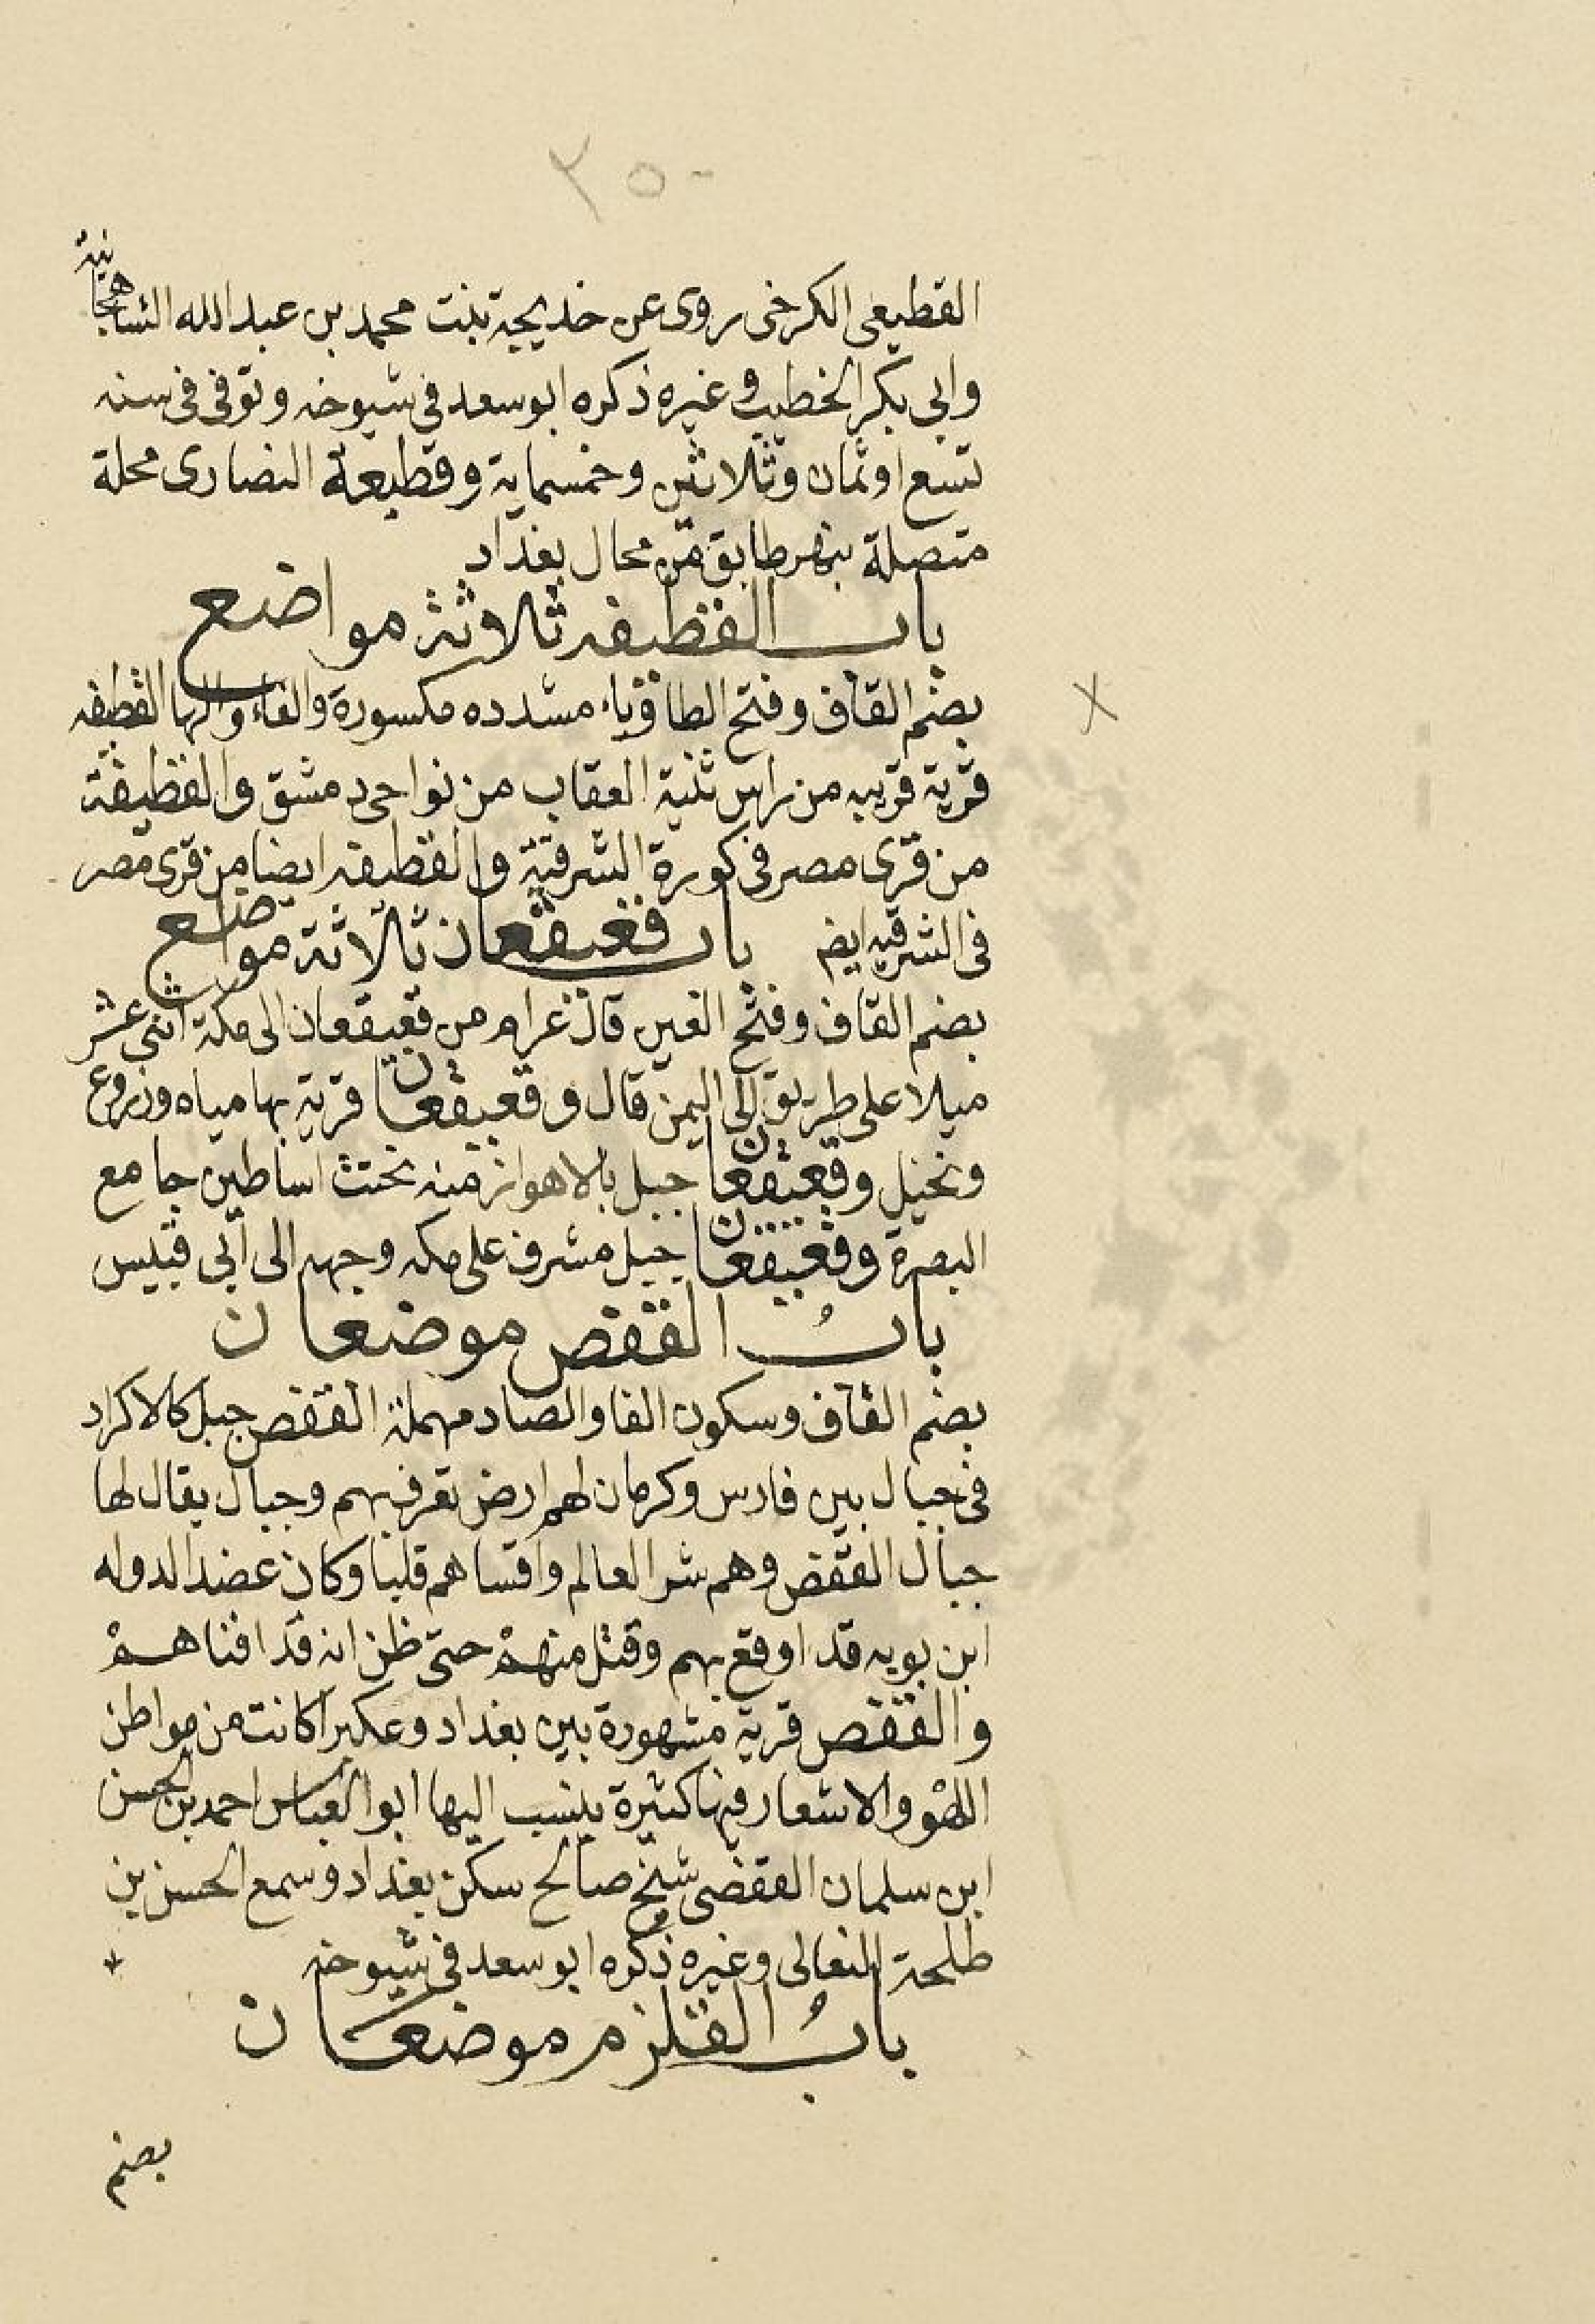 ٣٥٠
القطيعى الكرخى روى عن خديجة بنت محمد بن عبدالله الشاهجانية
وابى بكر الخطيب وغيره ذكره ابو سعد فى شيوخه وتوفى فى سنه
تسع او ثمان وثلاثين وخمسماية وقطيعة النصارى محلة
متصلة بنهر طابق من محال بغداد
باب القطيفه ثلاثة مواضع
بضم القاف وفتح الطا وياء مشدده مكسورة والفاء والها القطيفه
قرية قريبه من راس ثنية العقاب من نواحى دمشق والقطيفة
من قرى مصر فى كورة الشرقية والقطيفه ايضا من قرى مصر
فى الشرقيه ايضا باب قعيقعان ثلاثة مواضع
بضم القاف وفتح العين قال عرام من قعيقعان الى مكة اثنى عشر
ميلا على طريق الى اليمن قال وقعيقعان قرية بها مياه وزروع
ونخيل وقعيقعان جبل بالاهواز منه نحتت اساطين جامع
البصرة وقعيقعان جبل مشرف على مكه وجهه الى ابى قبيس
بابُ القفص موضعان
بضم القاف وسكون الفا والصاد مهملة القفص جبل كالاكراد
فى جبال بين فارس وكرمان لهم ارض تعرف بهم وجبال يقال لها
جبال القفص وهم شر العالم واقساهم قلبا وكان عضد الدوله
ابن بويه قد اوقع بهم وقتل منهم حتى ظن انه قد افناهم
والقفص قرية مشهورة بين بغداد وعكبرا كانت من مواطن
اللهو والاشعار فيها كثيرة ينسب اليها ابو العباس احمد بن الحسن
ابن سلمان القفصى شيخ صالح سكن بغداد وسمع الحسن بن
طلحة النعالى وغيره ذكره ابو سعد فى شيوخه
بابُ القلزم موضعان
بضم